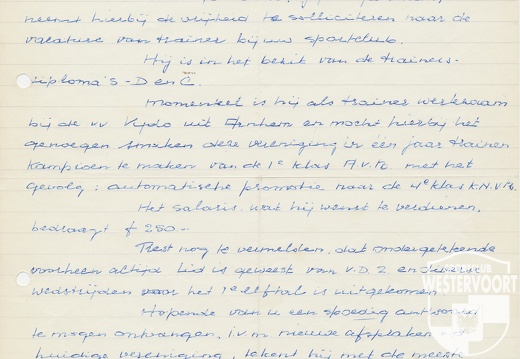 neemt hierbij de vrijheid te solliciteren naar de
vacature van trainer bij uw sportclub.
Hij is in het bezit van de trainers-
diploma's - D en C.
Momenteel is hij als trainer werkzaam
bij de v.v. Vydo uit Arnhem en mocht hierbij het
genoegen smaken deze vereniging in één jaar trainen
kampioen te maken van de 1e klas A.v.B. met het
gevolg: automatische promotie naar de 4e klas K.N.V.B.
Het salaris wat hij wenst te verdienen,
bedraagt f 250.-
Rest nog te vermelden, dat ondergetekende
voorheen altijd lid is geweest van V.D.Z en diverse
wedstrijden voor het 1e elftal is uitgekomen.
Hopende van u een spoedig antwoord
te mogen ontvangen, i.v.m. nieuwe afspraken
huidige vereniging, tekent hij met de meeste
WESTERVOORT